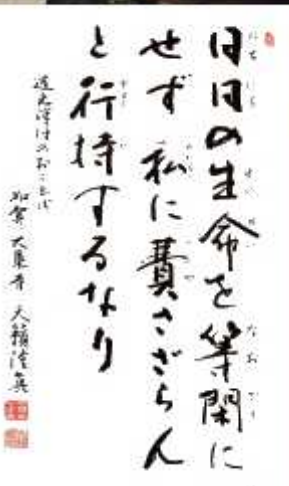 日日の生命を等閑に
せず私に費さざらん
と行持するなり
道元禅師のおことば
加賀大乗寺